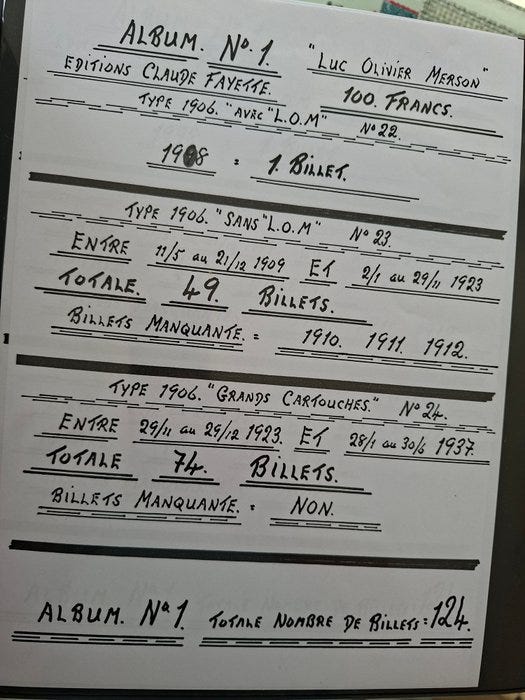 ALBUM. No. 1. "LUC OLIVIER MERSON"
EDITIONS CLAUDE FAYETTE. 100. FRANCS.
TYPE 1906. "AVEC "L.O.M" No 22.
1908 : 1. BILLET.
TYPE 1906. "SANS "L.O.M" No 23.
ENTRE 11/5 au 21/12 1909 ET 2/1 au 29/11 1923
TOTALE. 49. BILLETS.
BILLETS MANQUANTE. = 1910. 1911. 1912.
TYPE 1906. "GRANDS CARTOUCHES." No 24.
ENTRE 29/11 au 29/12 1923. ET 28/1 au 30/6 1937.
TOTALE 74. BILLETS.
BILLETS MANQUANTE. = NON.
ALBUM. No 1. TOTALE NOMBRE DE BILLETS = 124.